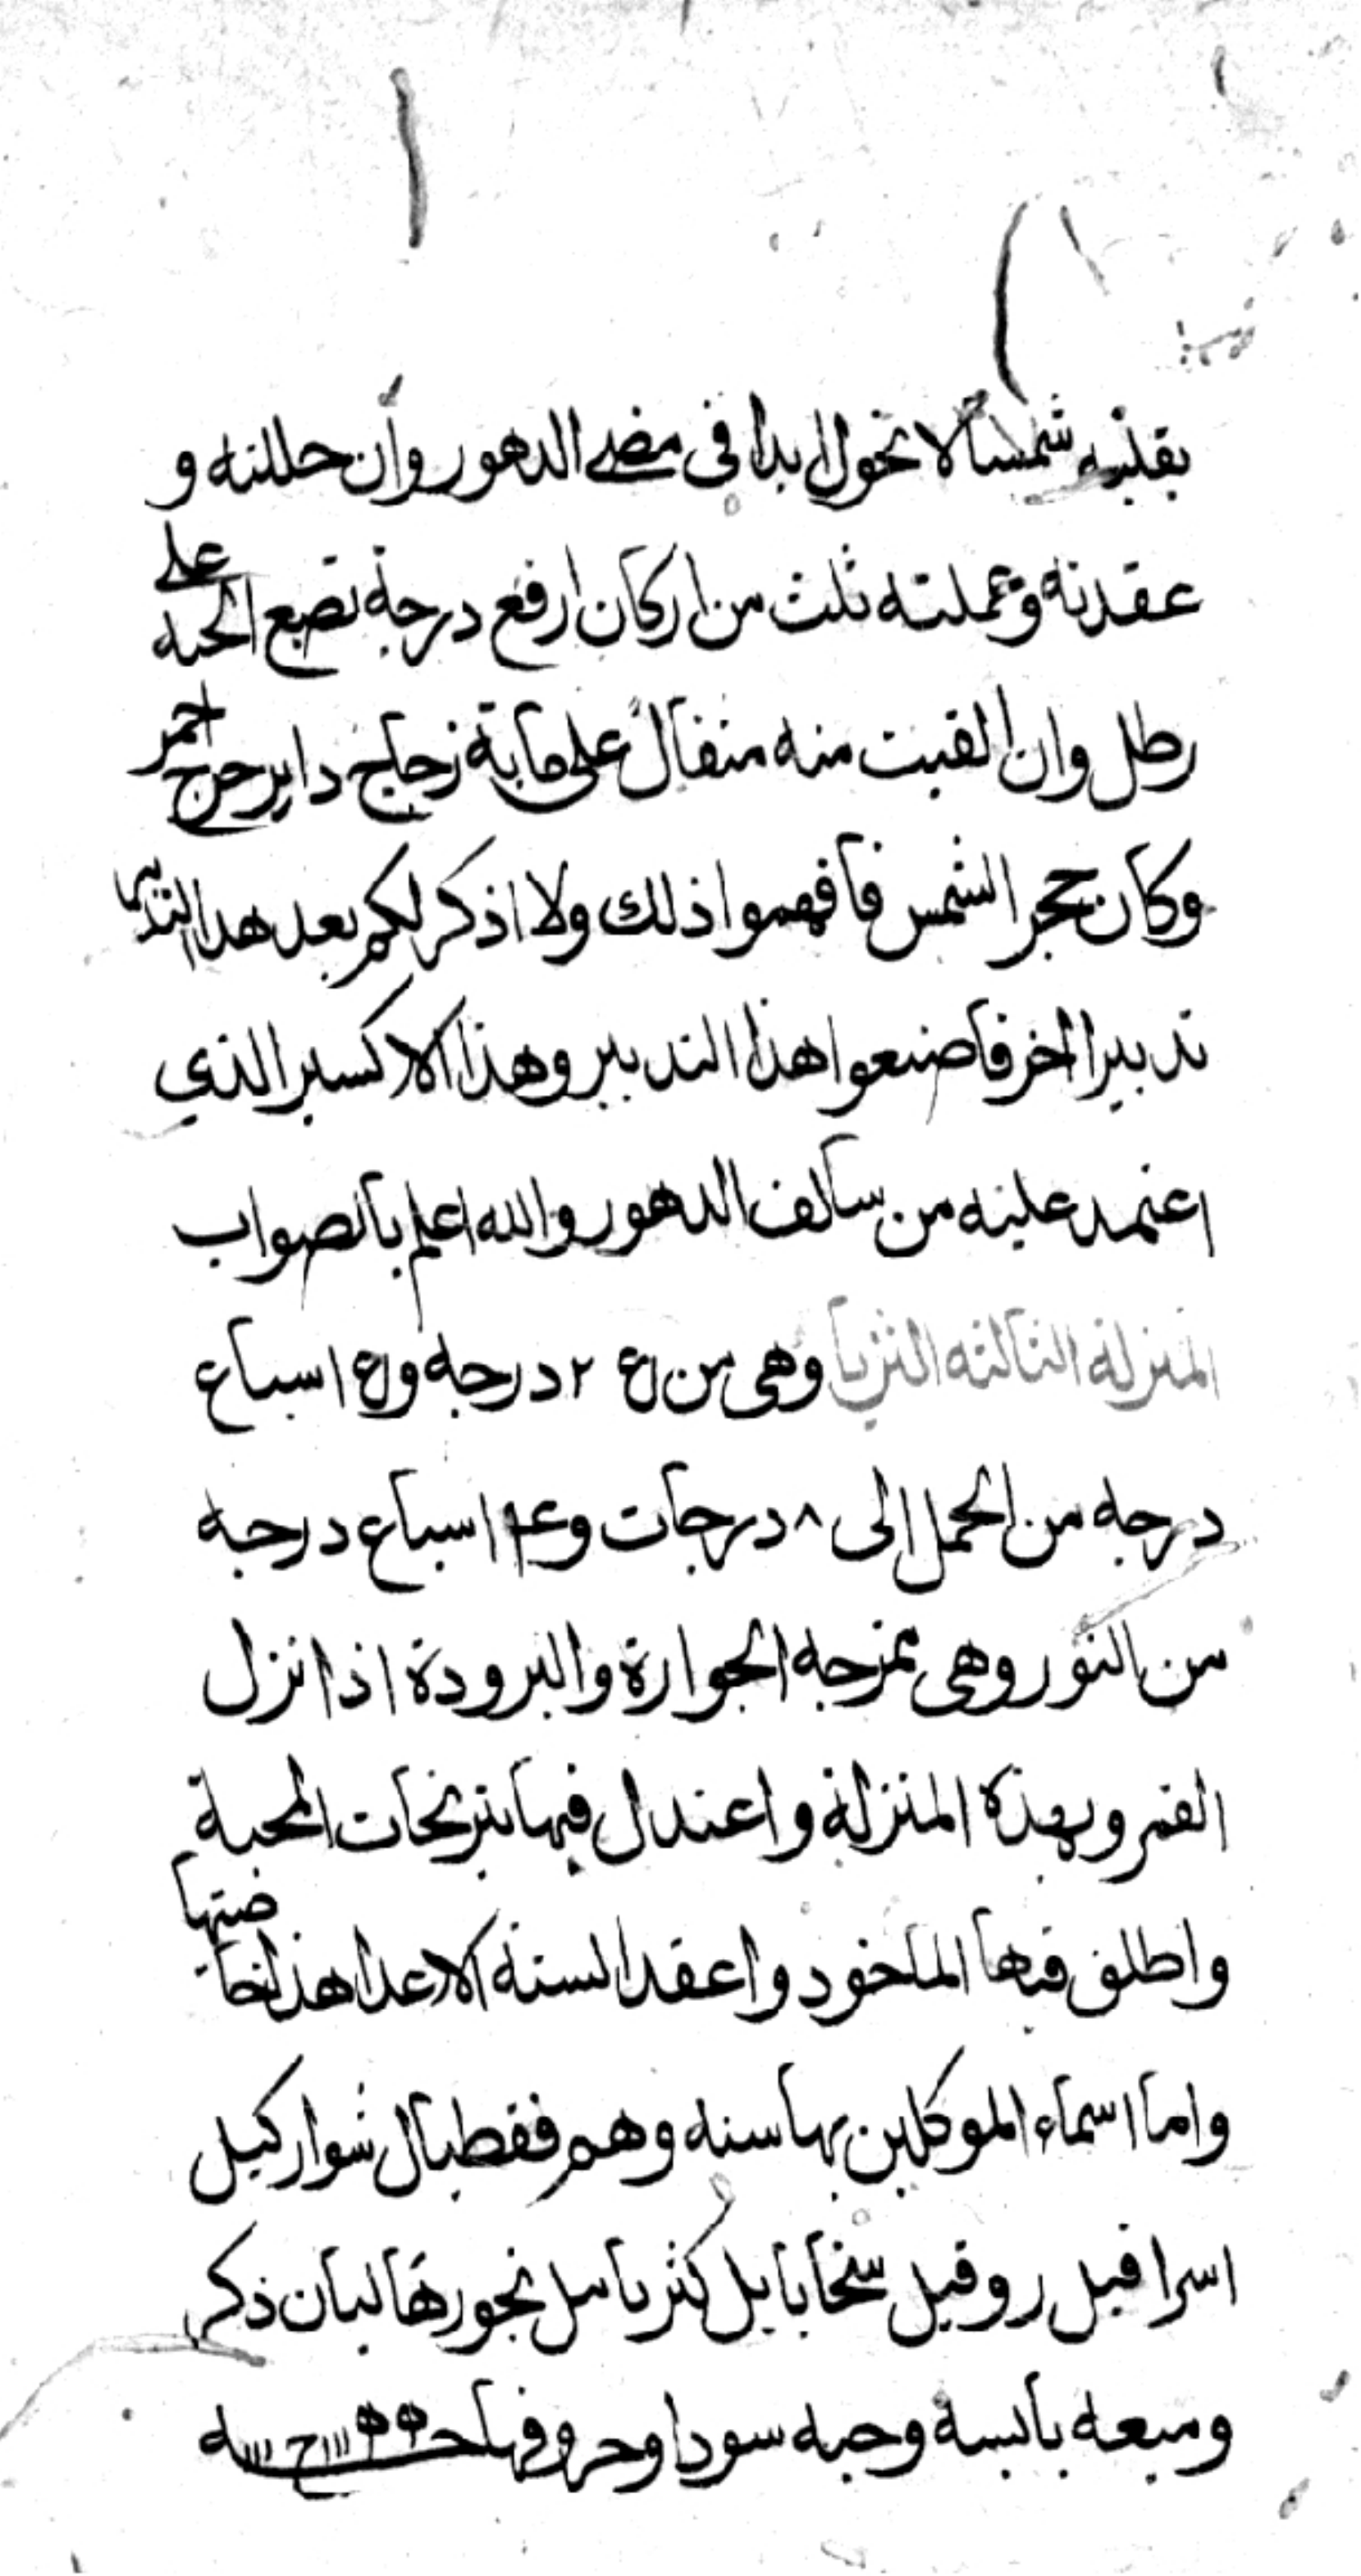 بقلبه شمسا لا تحول ابدا فى مضى الدهور وان حللته و
عقدته وعملته ثلث من اركان ارفع درجة تصبع الحبه على
رطل وان القيت منه مثقال على ماية زجاج داير خرج احمر
وكان حجر الشمس فافهموا ذلك ولا اذكر لكم بعد هدا التدبير
تدبيرا اخر فاصنعوا هذا التدبير وهذا الاكسير الذي
اعتمد عليه من سالف الدهور والله اعلم بالصواب
المنزلة الثالثه الثريا وهى من ٢ درجه اسباع
درجه من الحمل الى ٨ درجات اسباع درجه
من الثور وهى ممزجه الحرارة والبرودة اذا نزل
القمر وبهذه المنزلة واعتدل فيها نيرنجات المحبة
واطلق فيها الماخود واعقد السنة الاعدا هذا خاصتها
واما اسماء الموكلين بها سته وهم فقطيال شواركيل
اسرافيل روقيل سخايايل بخورها لبان ذكر
وميعه يابسه وحبه سودا وحروفها